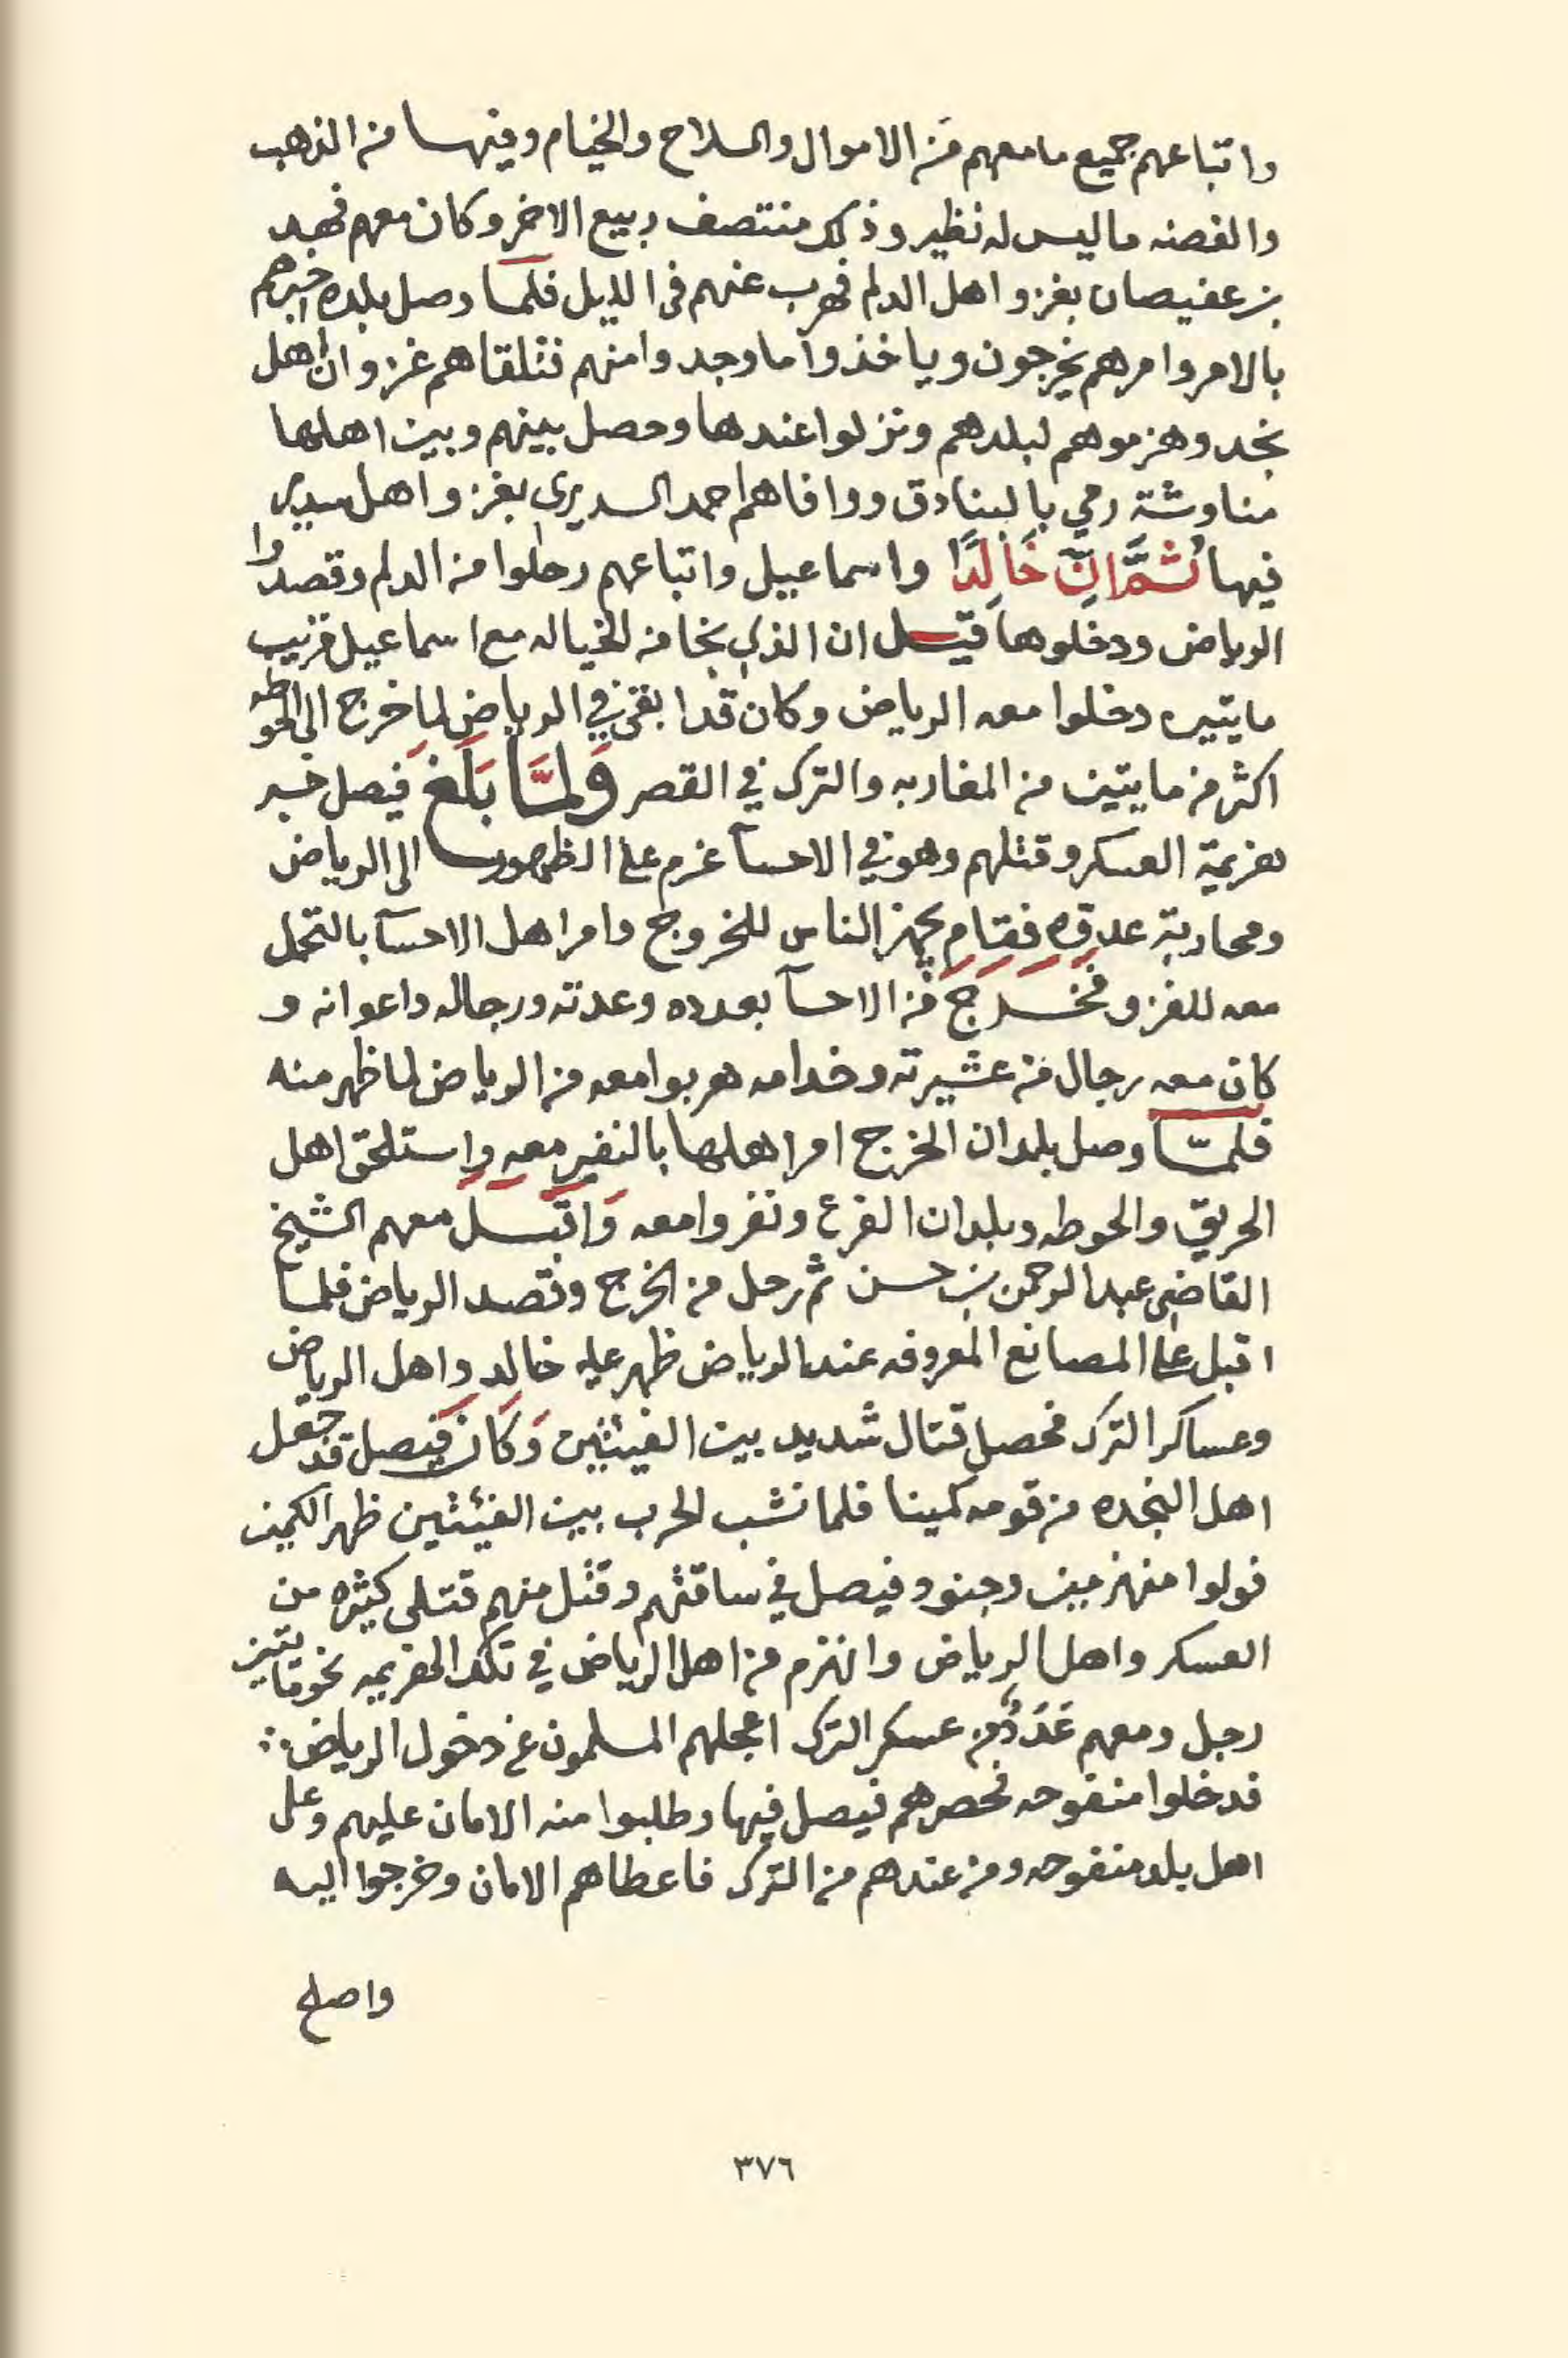 واتباعهم جميع مامعهم من الاموال والسلاح والخيام وفيها من الذهب
والفضه ماليس له نظير وذلك منتصف ربيع الاخر وكان معهم فهد
بن عفيصان بغزو اهل الدلم فهرب عنهم في الليل فلما وصل بلده اخبرهم
بالامر وامرهم يخرجون وياخذوا ما وجدوا منهم فتلقاهم غزوان اهل
نجد وهزموهم لبلدهم ونزلوا عندها وحصل بينهم وبين اهلها
مناوشة رمي بالبنادق ووافاهم احمد السديري بغزو اهل سدير
فيها ثُمَّ اِنَّ خَالِدًا واسماعيل واتباعهم رحلوا من الدلم وقصدوا
الرياض ودخلوها قيل ان الذي نجا من الخياله مع اسماعيل قريب
مايتين دخلوا معه الرياض وكان قد ابقى في الرياض لما خرج الى الحوطه
اكثر من مايتين من المغاربه والترك في القصر وَلمَّا بَلَغَ فيصل خبر
هزيمة العسكر وقتلهم وهو في الاحسآ عزم على الظهور الى الرياض
ومحاربة عدوه فقام يجهز الناس للخروج وامر اهل الاحسآ بالتحمل
معه للغزو فخرج من الاحسآ بعدده وعدته ورجاله واعوانه و
كان معه رجال من عشيرته وخدامه هربوا معه من الرياض لما ظهر منه
فلمّا وصل بلدان الخرج امر اهلها بالنفير معه واستلحق اهل
الحريق والحوطه وبلدان الفرع ونفروا معه وَاقبل معهم الشيخ
القاضي عبدالرحمن بن حسن ثم رحل من الخرج وقصد الرياض فلما
اقبل على المصانع المعروفه عند الرياض ظهر عليه خالد واهل الرياض
وعساكر الترك فحصل قتال شديد بين الفيئتين وَكَان فيصل قد جعل
اهل النجده من قومه كمينا فلما نشب الحرب بين الفيئتين ظهر الكمين
فولوا منهزمين وجنود فيصل في ساقتهم وقتل منهم قتلى كثيره من
العسكر واهل الرياض وانهزم من اهل الرياض في تلك الهزيمه نحو مايتين
رجل ومعهم عَدَدٌ من عسكر الترك اعجلهم المسلمون عن دخول الرياض
فدخلوا منفوحه فحصرهم فيصل فيها وطلبوا منه الامان عليهم وعلى
اهل بلد منفوحه ومن عندهم من الترك فاعطاهم الامان وخرجوا اليه
واصلح
٣٧٦